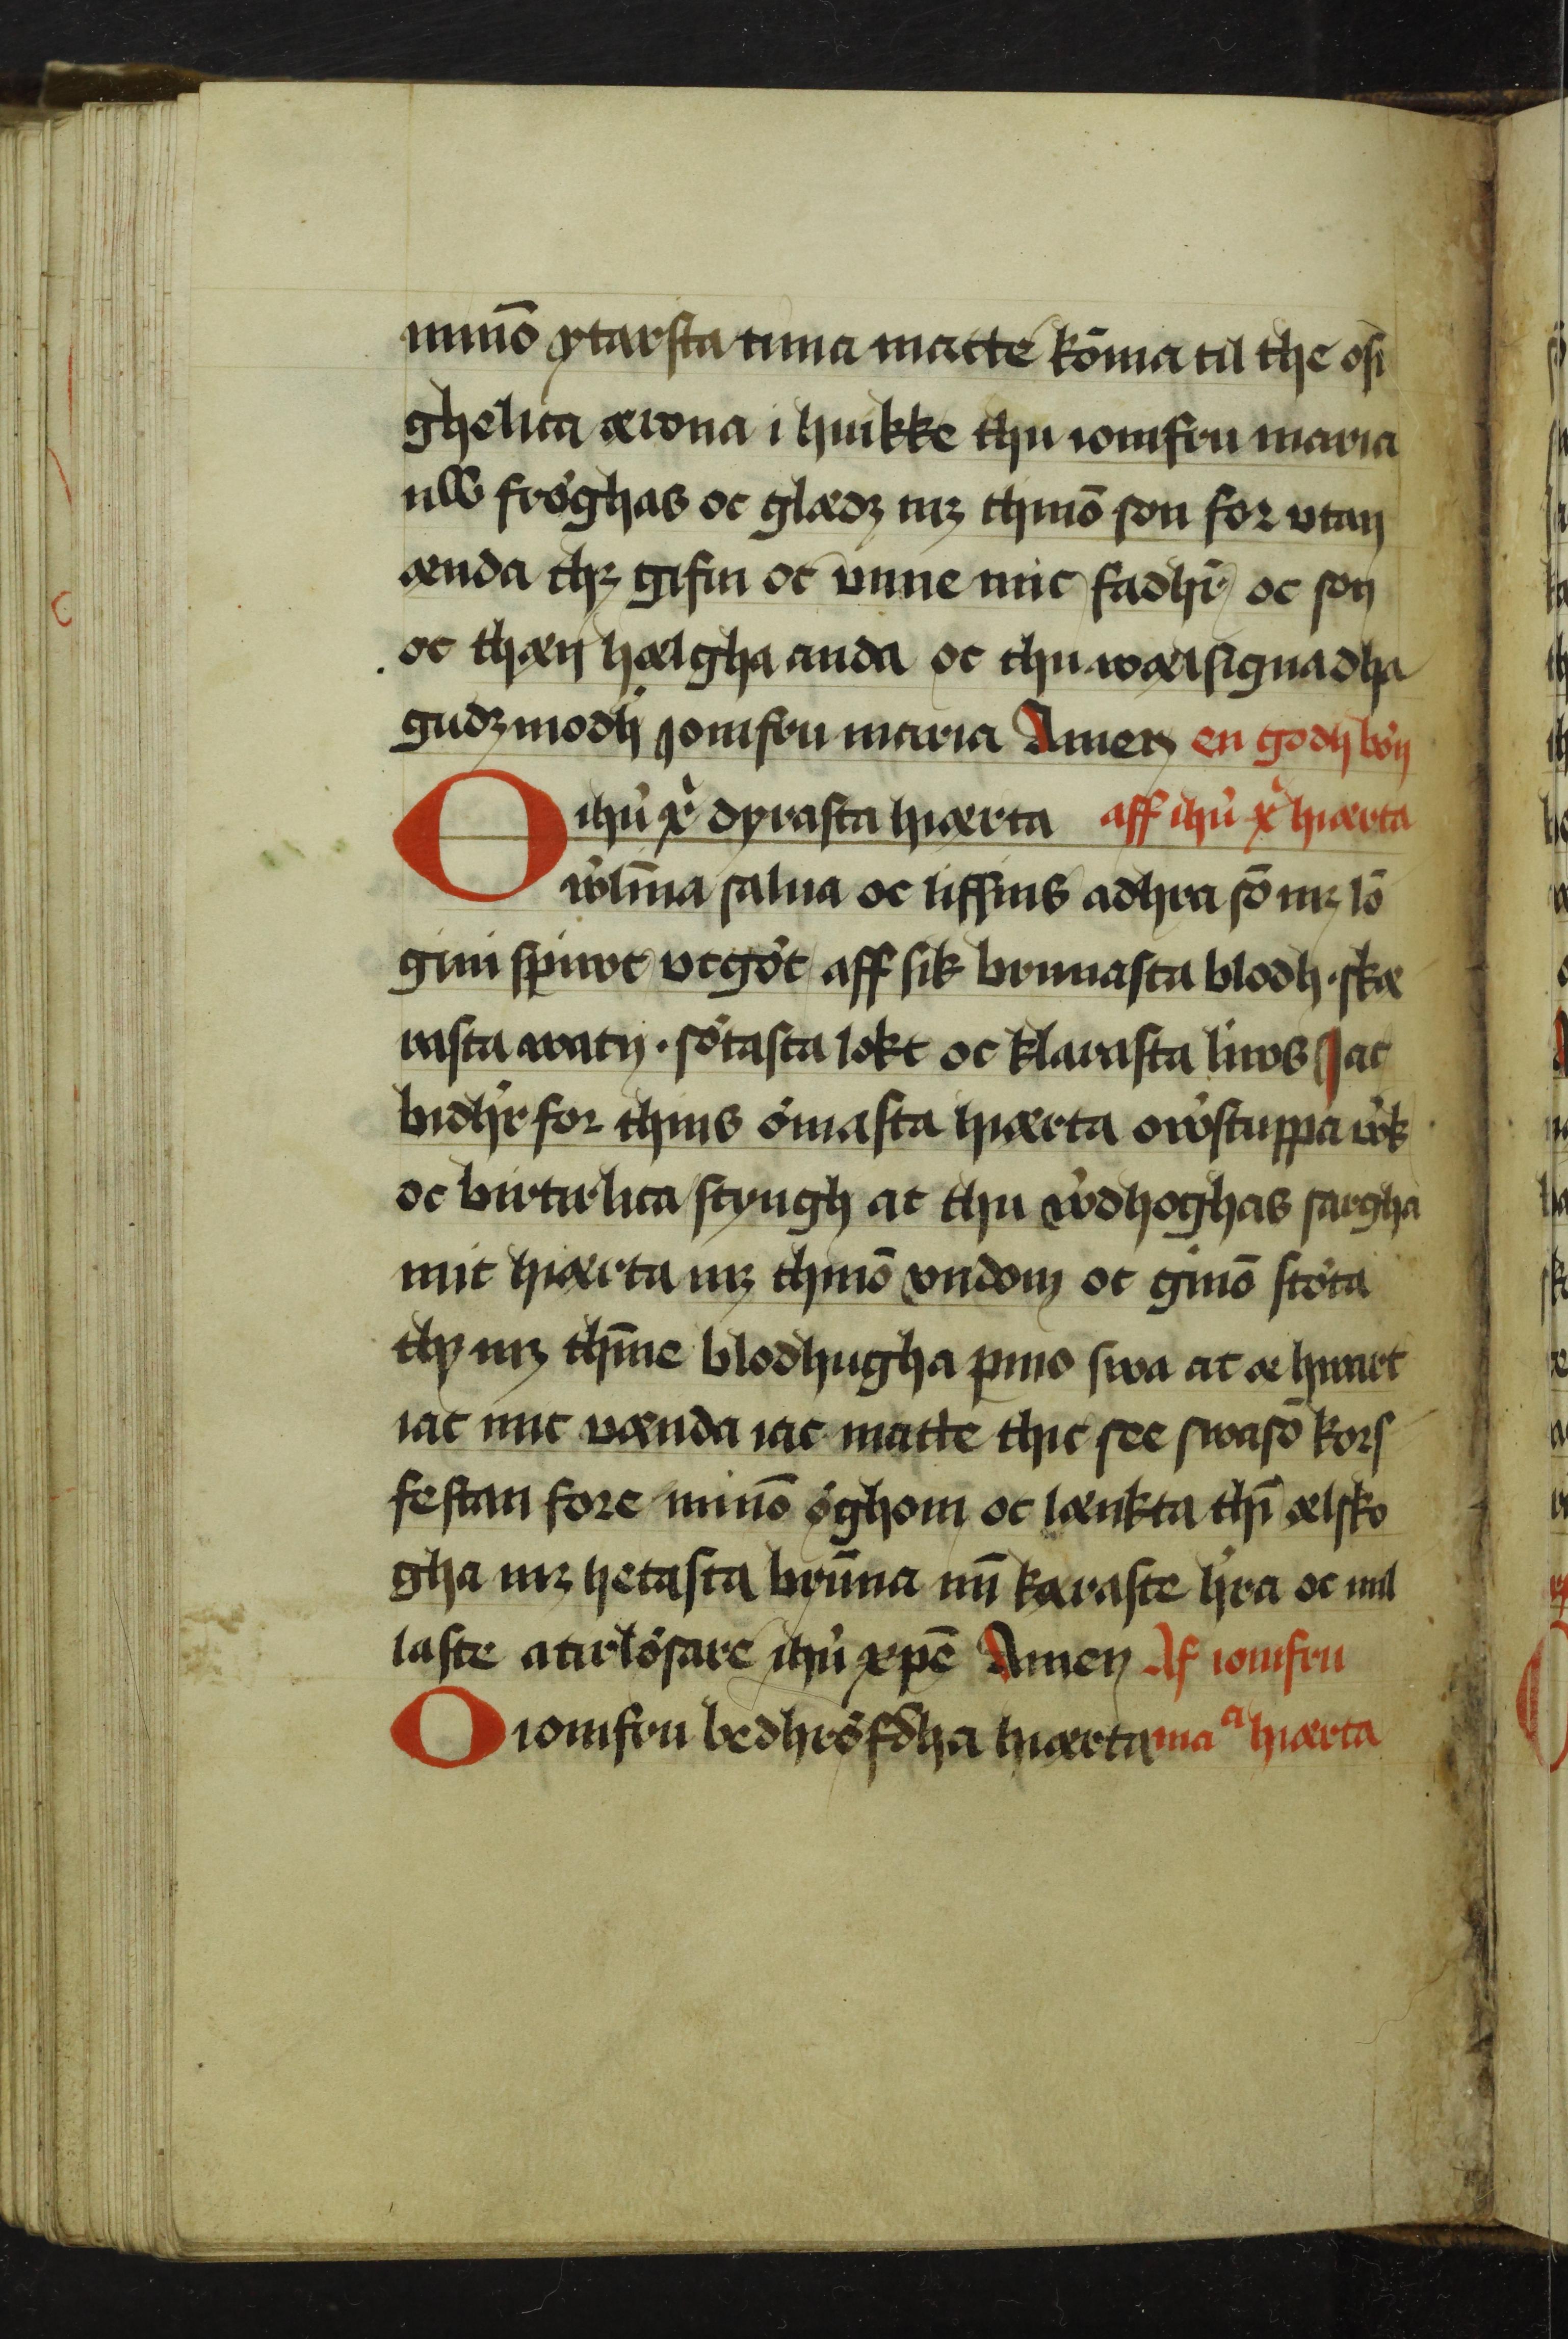 minō ytarsta tima matte kōma til the osi
ghelica ærona i huikke thu iomfru maria
nw frőghas oc glædꝫ mꝫ thinō son for vtan
ænda thꝫ gifin oc vnne mic fadhir oc son
oc thæn hælgha anda oc thu wælsignadha
gudꝫ modh iomfru maria Amen en godh bőn
O ihű xᷓ dyrasta hiærta aff ihű xᷓ hiærta
wlīna salua oc liffins adhra sō mꝫ lō
gini spiwt vtgőt aff sik brunasta blodh · skæ
rasta watn · sőtasta lokt oc klarasta liws Jac
bidhr for thins őmasta hiærta owstuppa wk
oc birtirlica styngh at thu wdhoghas sargha
mit hiærta mꝫ thinō vndom oc ginō stőta
thy mꝫ thīne blodhugha pino swa at æ hwart
iac mic vænda iac matte thic see swasō kors
festan fore minō őghom oc lænkta thī ælsko
gha mꝫ hetasta brūna mī kæraste hra oc mil
laste atirlősare ihű xpē Amen Af iomfru
O iomfru bedhrőfdha hiærta maᵃ hiærta